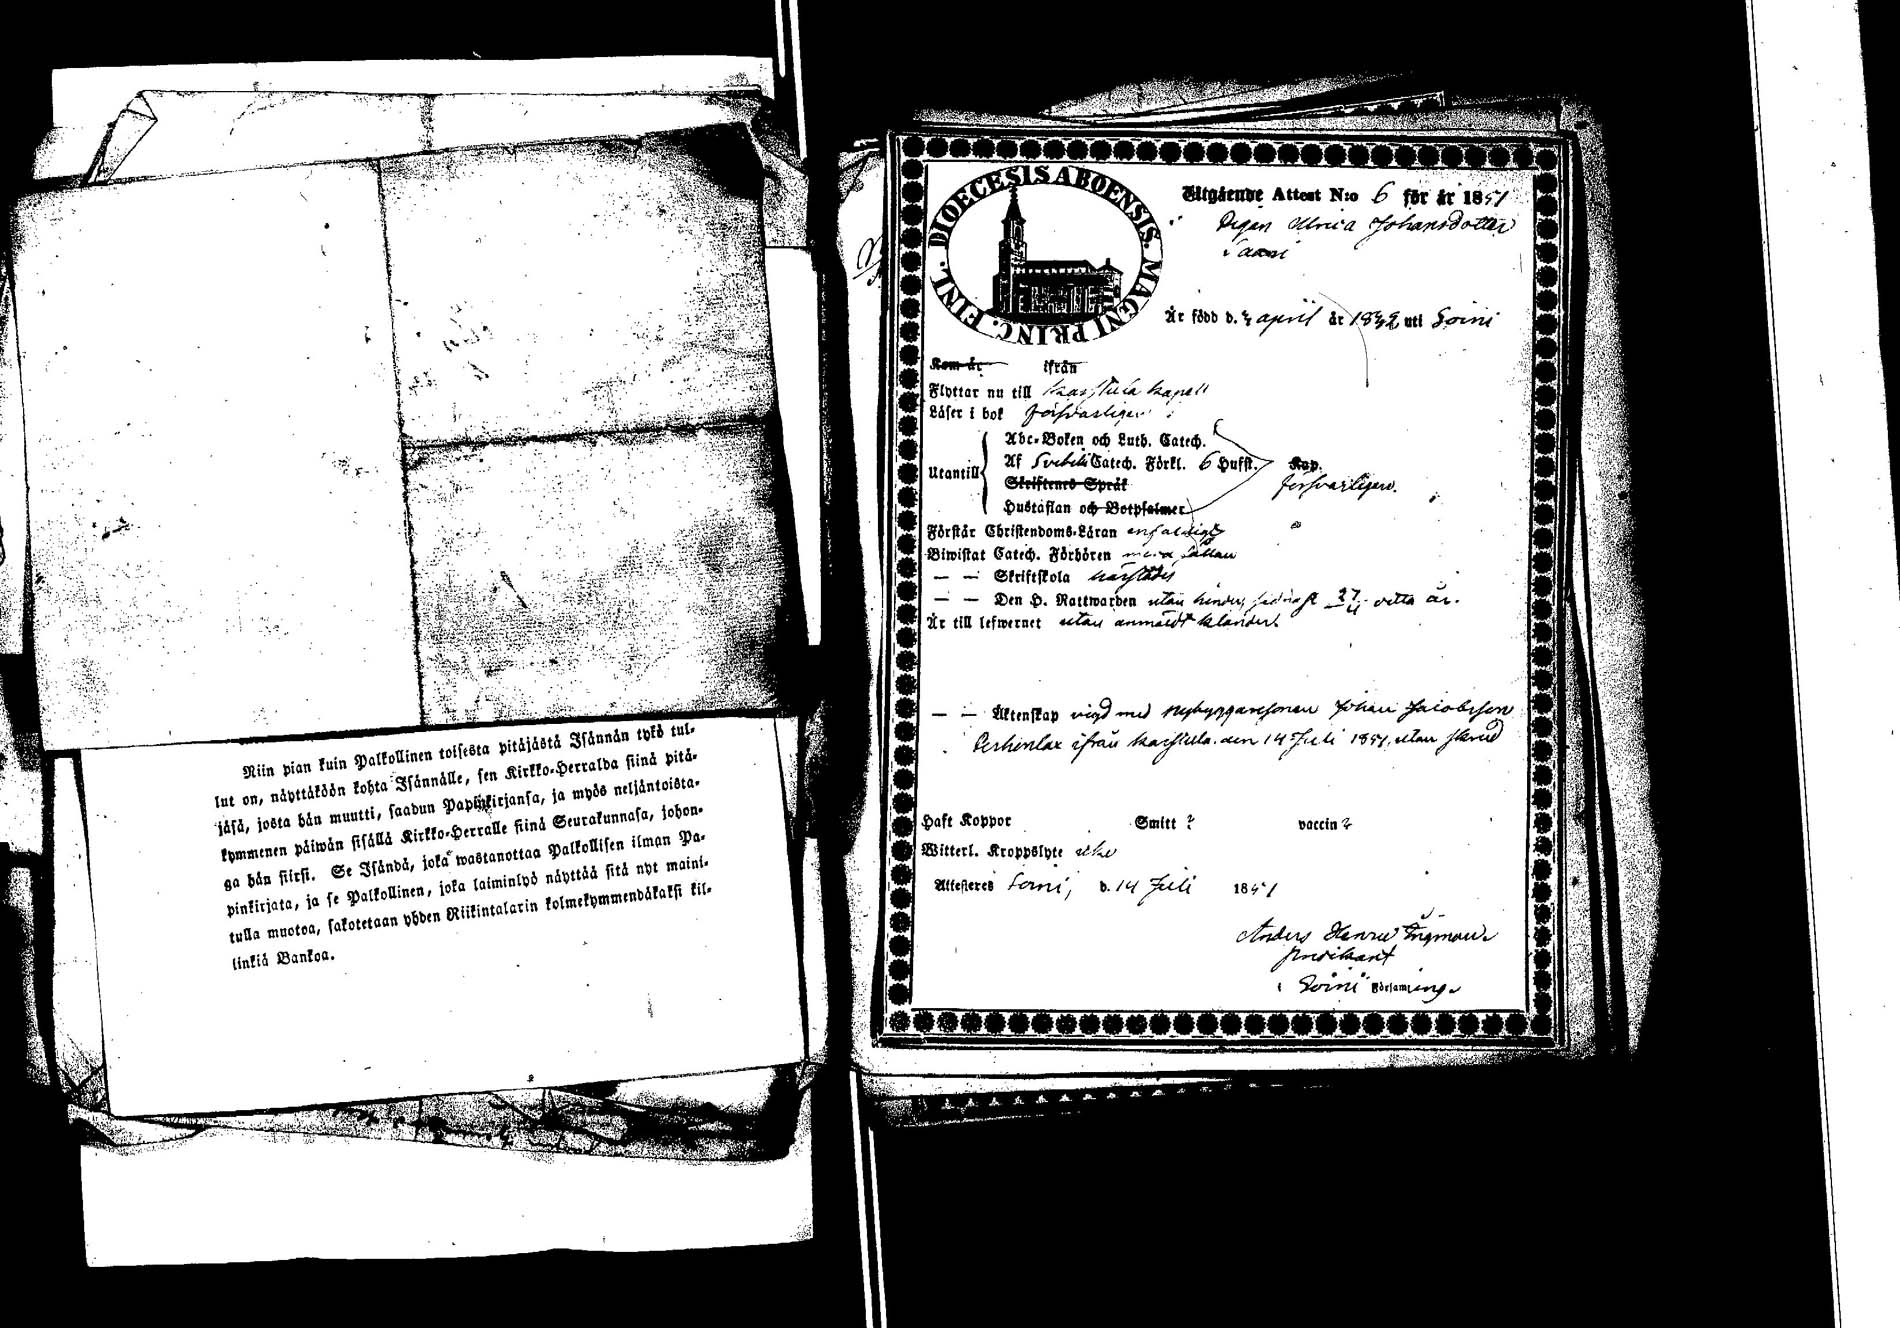 Niin pian kuin Palkollinen toisesta pitäjästä Isännän tykö tul-
lut on, näyttäköön kohta Isännälle, sen Kirkko-Herralda siinä pitä-
jäsä, josta hän muutti, saadun Papinkirjansa, ja myös neljäntoista-
kymmenen päiwän sisällä Kirkko-Herralle siinä Seurakunnasa, johon-
ga hän siirsi. Se Isändä, joka wastanottaa Palkollisen ilman Pa-
pinkirjata, ja se Palkollinen, joka laiminlyö näyttää sitä nyt maini-
tulla muotoa, sakotetaan yhden Riikintalarin kolmekymmendäkaksi kil-
linkiä Bankoa.
DIOECESIS ABOENSIS. MAGNI PRINC. FINL.
Utgående Attest N:o 6 för år 1851
Pigan Ulrica Johansdotter
Är född d. april år uti Soini
Kom år ifrån
Flyttar nu till Karstula kapell
Läser i bok försvarligen
Abc-Boken och Luth. Catech.
Utantill Af Svebili Catech. Förkl. 6 Hufst. Kap.
Skriftenes Språk försvarligen.
Hustaflan och Botpsalmer
Förstår Christendoms-Läran enfaldigt
Biwistat Catech. Förhören
— — Skriftskola
— — Den H. Nattwarden utan hinder, sednast 27/4 detta år.
Är till lefwernet utan anmäldt klander.
— — Äktenskap vigd med nybyggaresonen Johan Jacobsson
ifrån Karstula den 14 Juli 1851, utan
Haft Koppor Smitt ? vaccin ?
Witterl. Kroppslyte icke
Attesteras Soini, d. 14 Juli 1851
Anders Henric Ingman
Predikant
i Soini Församling.